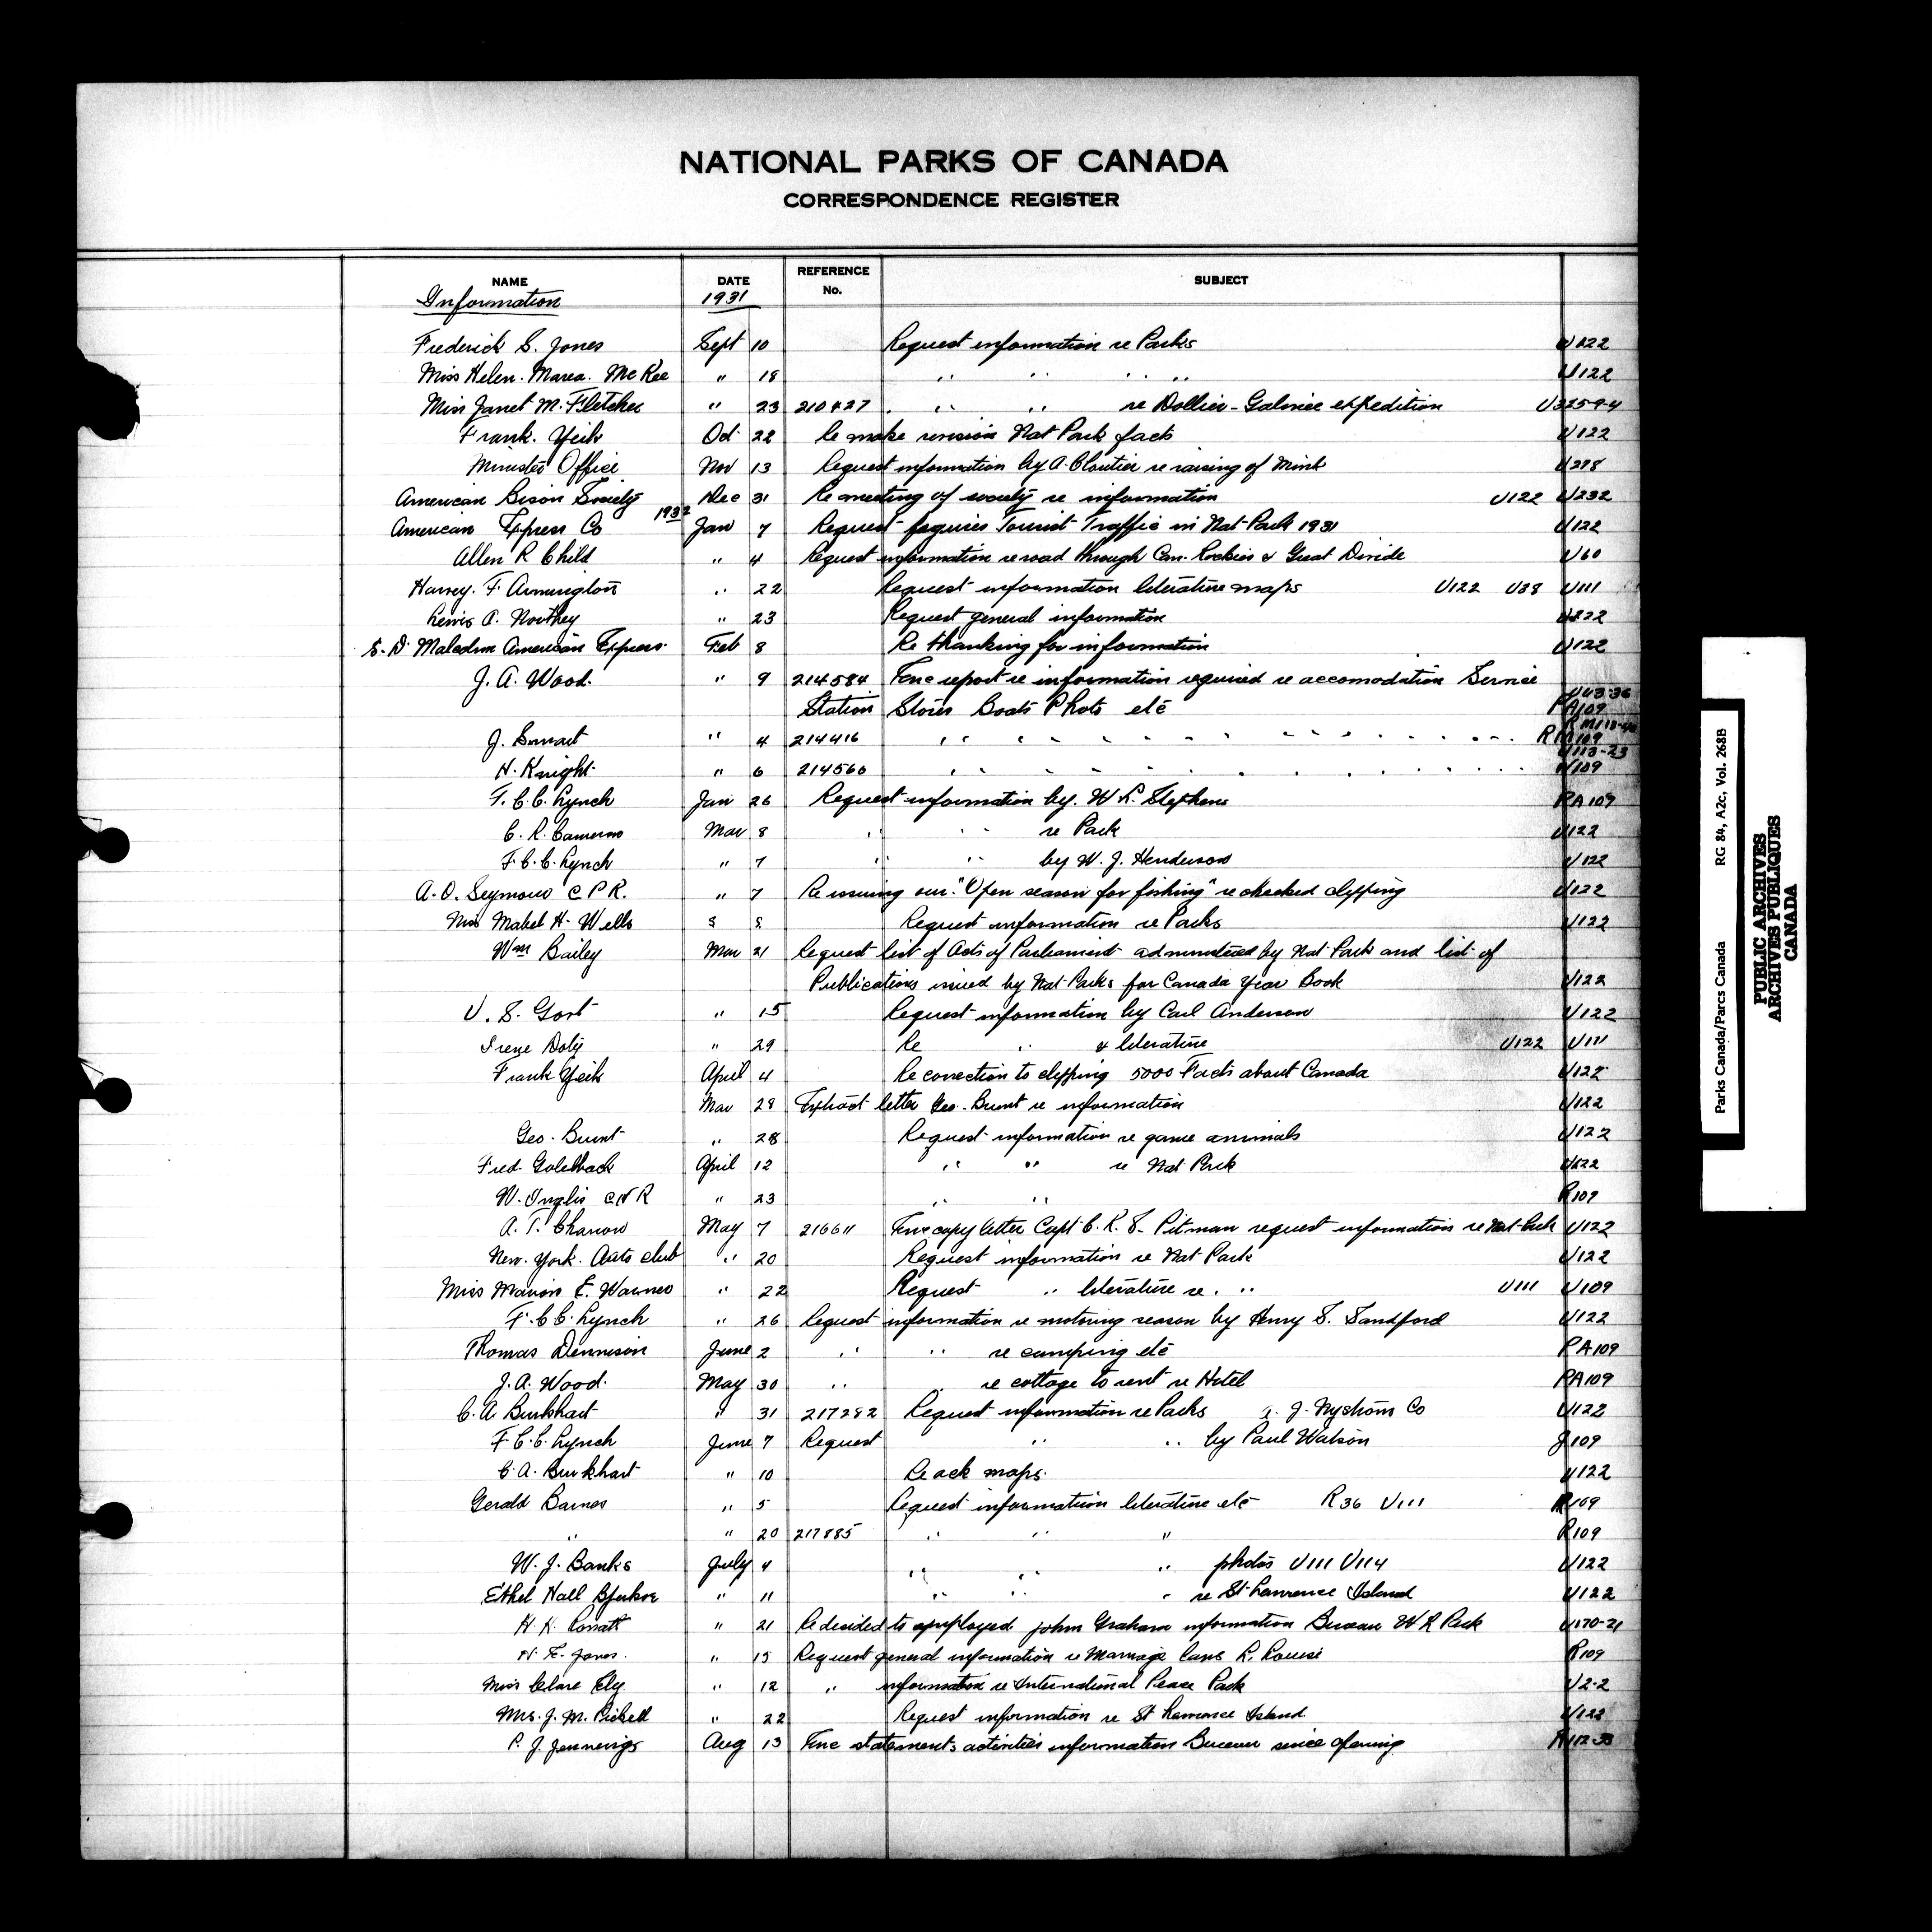 NATIONAL PARKS OF CANADA
CORRESPONDENCE REGISTER
NAME DATE REFERENCE No. SUBJECT
Information 1931
Frederick S. Jones Sept 10 Request information re Parks U122
Miss Helen Marea McKee " 18 " " " " U122
Miss Janet M. Fletcher " 23 210427 " " re Dollier-Galinee expedition U325-9-4
Frank Yeih Oct 22 Re make revision Nat Park facts U122
Minister Office Nov 13 Request information by A. Cloutier re raising of Mink U278
American Bison Society Dec 31 Re meeting of society re information U122 U232
American Express Co 1932 Jan 7 Request fequires Tourist Traffic in Nat Park 1931 U122
Allen R Child " 4 Request information re road through Can. Rockies & Great Divide U60
Harvey F Armington " 22 Request information literature maps U122 U38 U111
Lewis A. Northey " 23 Request general information U122
S. D. Malcolm American Express Feb 8 Re thanking for information U122
J. A. Wood " 9 214584 Enc report re information required re accomodation Service U43-36
Station Stores Boats Photo etc RA109
J. Smart " 4 214416 " " " " " " RM109
H. Knight " 6 214560 " " " " " " U113-23 U109
F. C. C. Lynch Jan 26 Request information by W. R. Stephens RA109
C. R. Cameron Mar 8 " " re Park U122
F. C. C. Lynch " 7 " " by W. J. Henderson U122
A. O. Seymour C P R. " 7 Re issuing our "Open season for fishing" re checked clipping U122
Miss Mabel H. Wells " 8 Request information re Parks U122
Wm Bailey Mar 21 Request list of Acts of Parliament administered by Nat Park and list of
Publications issued by Nat Parks for Canada Year Book U122
U. S. Govt " 15 Request information by Carl Anderson U122
Irene Doly " 29 Re " & literature U122 U111
Frank Yeih April 4 Re correction to clipping 5000 Facts about Canada U122
Mar 28 Extract letter Geo. Burnt re information U122
Geo. Burnt " 28 Request information re game animals U122
Fred. Goldback April 12 " " re Nat Park U122
W. Inglis C N R " 23 " " R109
A. T. Charron May 7 216611 Enc copy letter Capt C. R. S. Pitman request information re Nat Park U122
New York Auto Club " 20 Request information re Nat Park U122
Miss Marion E. Warner " 22 Request " literature re " U111 U109
F. C C. Lynch " 26 Request information re motoring season by Henry S. Sandford U122
Thomas Dennison June 2 " " re camping etc RA109
J. A. Wood May 30 " " re cottage to rent re Hotel RA109
C. A. Burkhart " 31 217282 Request information re Parks A. J. Nystrom Co U122
F C. C. Lynch June 7 Request " " by Paul Watson J109
C. A. Burkhart " 10 Re ack maps U122
Gerald Barnes " 5 Request information literature etc R36 U111 R109
" " 20 217885 " " " R109
W. J. Banks July 4 " " " photos U111 U114 U122
Ethel Hall " 11 " " " re St Lawrence Island U122
H. K. " 21 Re decided to employed John Graham information Bureau W L Park U170-21
H. E. Jones " 15 Request general information re Marriage laws L. Louise R109
Miss Clare Ely " 12 " information re International Peace Park U2-2
Mrs. J. M. Pickell " 22 Request information re St Lawrence Island U122
P. J. Jennings Aug 13 Enc statements activities information Bureau since opening R112-33
Parks Canada/Parcs Canada RG 84, A2c, Vol. 268B
PUBLIC ARCHIVES
ARCHIVES PUBLIQUES
CANADA